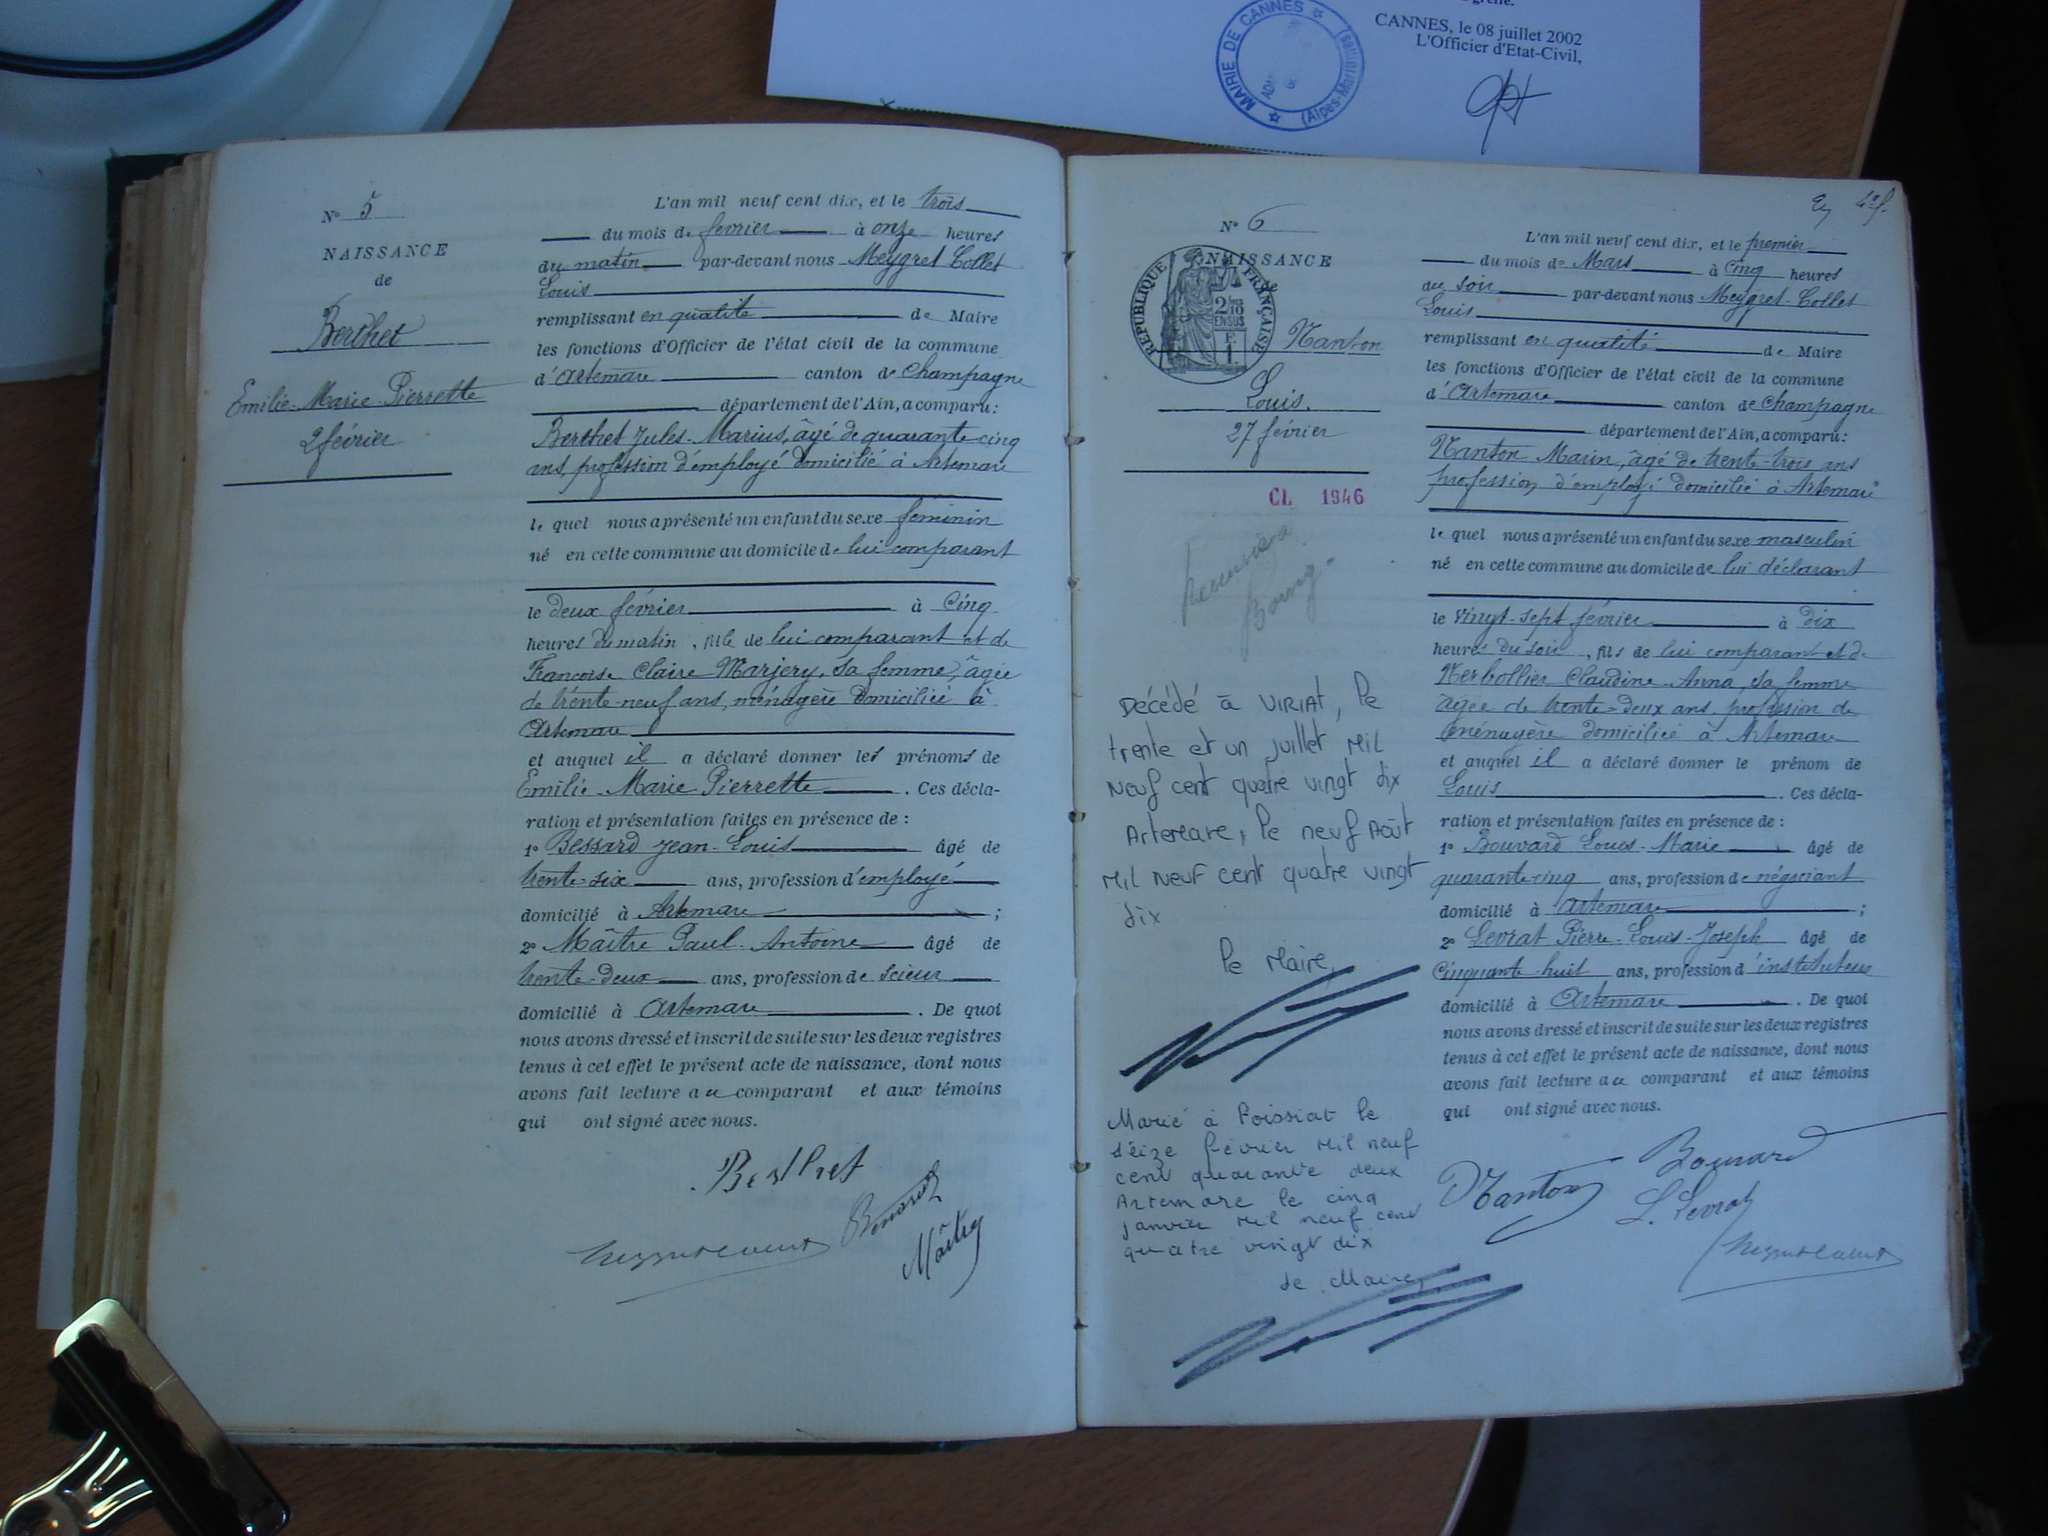 CANNES, le 08 juillet 2002
L'Officier d'Etat-Civil,
MAIRIE DE CANNES
(Alpes-Maritimes)
N° 5
NAISSANCE
de
Berthet
Emilie-Marie-Pierrette
2 février
L'an mil neuf cent dix, et le trois
du mois de février à onze heures
du matin par-devant nous Meygret Collet
Louis
remplissant en qualité de Maire
les fonctions d'Officier de l'état civil de la commune
d'Artemare canton de Champagne
département de l'Ain, a comparu:
Berthet Jules-Marius, âgé de quarante-cinq
ans, profession d'employé domicilié à Artemare
le quel nous a présenté un enfant du sexe féminin
né en cette commune au domicile de lui comparant
le deux février à Cinq
heures du matin, fille de lui comparant et de
Françoise Claire Marjery, sa femme, âgée
de trente-neuf ans, ménagère domiciliée à
Artemare
et auquel il a déclaré donner les prénoms de
Emilie-Marie Pierrette. Ces décla-
ration et présentation faites en présence de:
1° Bessard Jean-Louis âgé de
trente-six ans, profession d'employé
domicilié à Artemare ;
2° Maître Paul-Antoine âgé de
trente-deux ans, profession de scieur
domicilié à Artemare. De quoi
nous avons dressé et inscrit de suite sur les deux registres
tenus à cet effet le présent acte de naissance, dont nous
avons fait lecture au comparant et aux témoins
qui ont signé avec nous.
Berthet
Maître
N° 6
NAISSANCE
REPUBLIQUE FRANÇAISE
2/10
EN SUS
1 F.
Nanton
Louis.
27 février
CL 1946
Bourg
Décédé à VIRIAT, le
trente et un juillet mil
neuf cent quatre vingt dix
Artemare, le neuf Août
mil neuf cent quatre vingt
dix
le Maire,
Marié à Foissiat le
seize février mil neuf
cent quarante deux
Artemare le cinq
janvier mil neuf cent
quatre vingt dix
Le Maire,
L'an mil neuf cent dix, et le premier
du mois de Mars à Cinq heures
du soir par-devant nous Meygret-Collet
Louis
remplissant en qualité de Maire
les fonctions d'Officier de l'état civil de la commune
d'Artemare canton de Champagne
département de l'Ain, a comparu:
Nanton Marin, âgé de trente-trois ans
profession d'employé domicilié à Artemare
le quel nous a présenté un enfant du sexe masculin
né en cette commune au domicile de lui déclarant
le vingt-sept février à dix
heures du soir, fils de lui comparant et de
Claudine-Anna, sa femme
âgée de trente-deux ans, profession de
ménagère domiciliée à Artemare
et auquel il a déclaré donner le prénom de
Louis. Ces décla-
ration et présentation faites en présence de:
1° Bouvard Louis-Marie âgé de
quarante-cinq ans, profession de négociant
domicilié à Artemare ;
2° Levrat Pierre-Louis-Joseph âgé de
Cinquante-huit ans, profession d'instituteur
domicilié à Artemare. De quoi
nous avons dressé et inscrit de suite sur les deux registres
tenus à cet effet le présent acte de naissance, dont nous
avons fait lecture au comparant et aux témoins
qui ont signé avec nous.
Bouvard
Nanton
L. Levrat